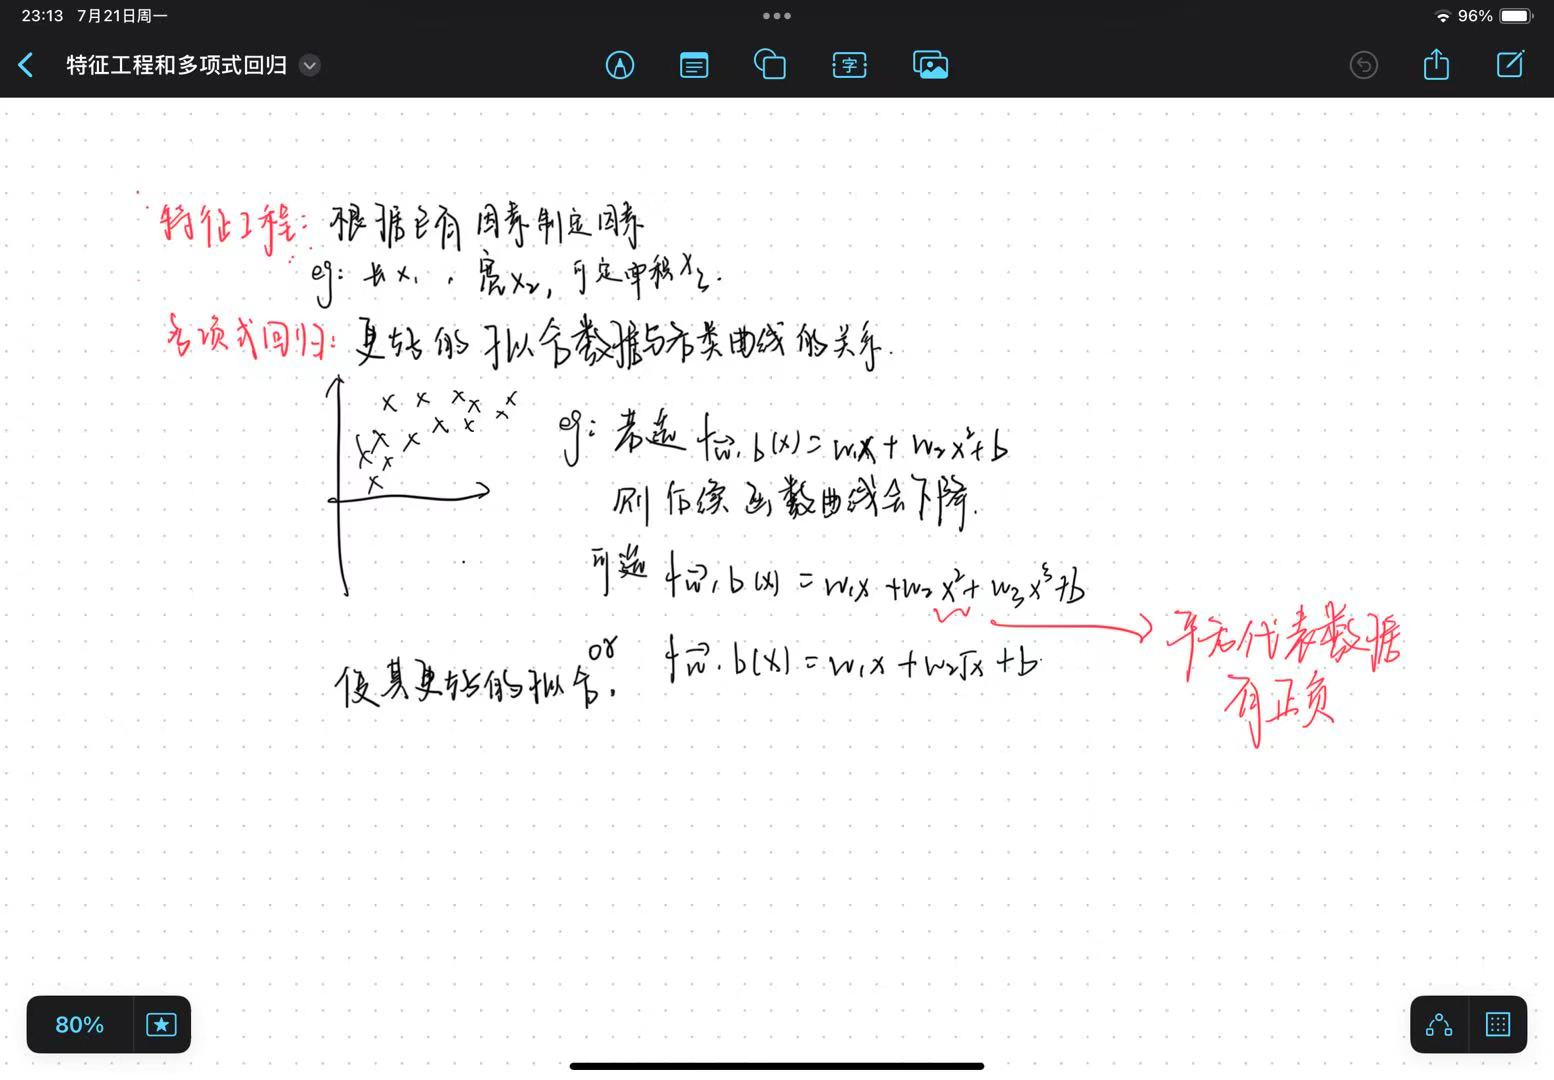 23:13 7月21日周一
96%
特征工程和多项式回归
字
特征工程: 根据已有因素制定因素
eg: 长x₁, 宽x₂, 可定面积x₃.
多项式回归: 更好的拟合数据与各类曲线的关系.
eg: 若选 f w⃗,b(x) = w₁x + w₂x² + b
则后续函数曲线会下降.
可选 f w⃗,b(x) = w₁x + w₂x² + w₃x³ + b
平方代表数据
有正负
or f w⃗,b(x) = w₁x + w₂√x + b
使其更好的拟合.
80%